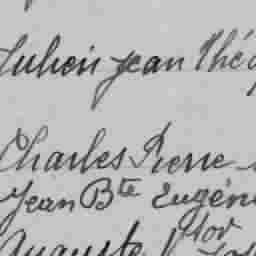 Julien Jean Thé
Charles Pierre
Jean Bte Eugène
Auguste